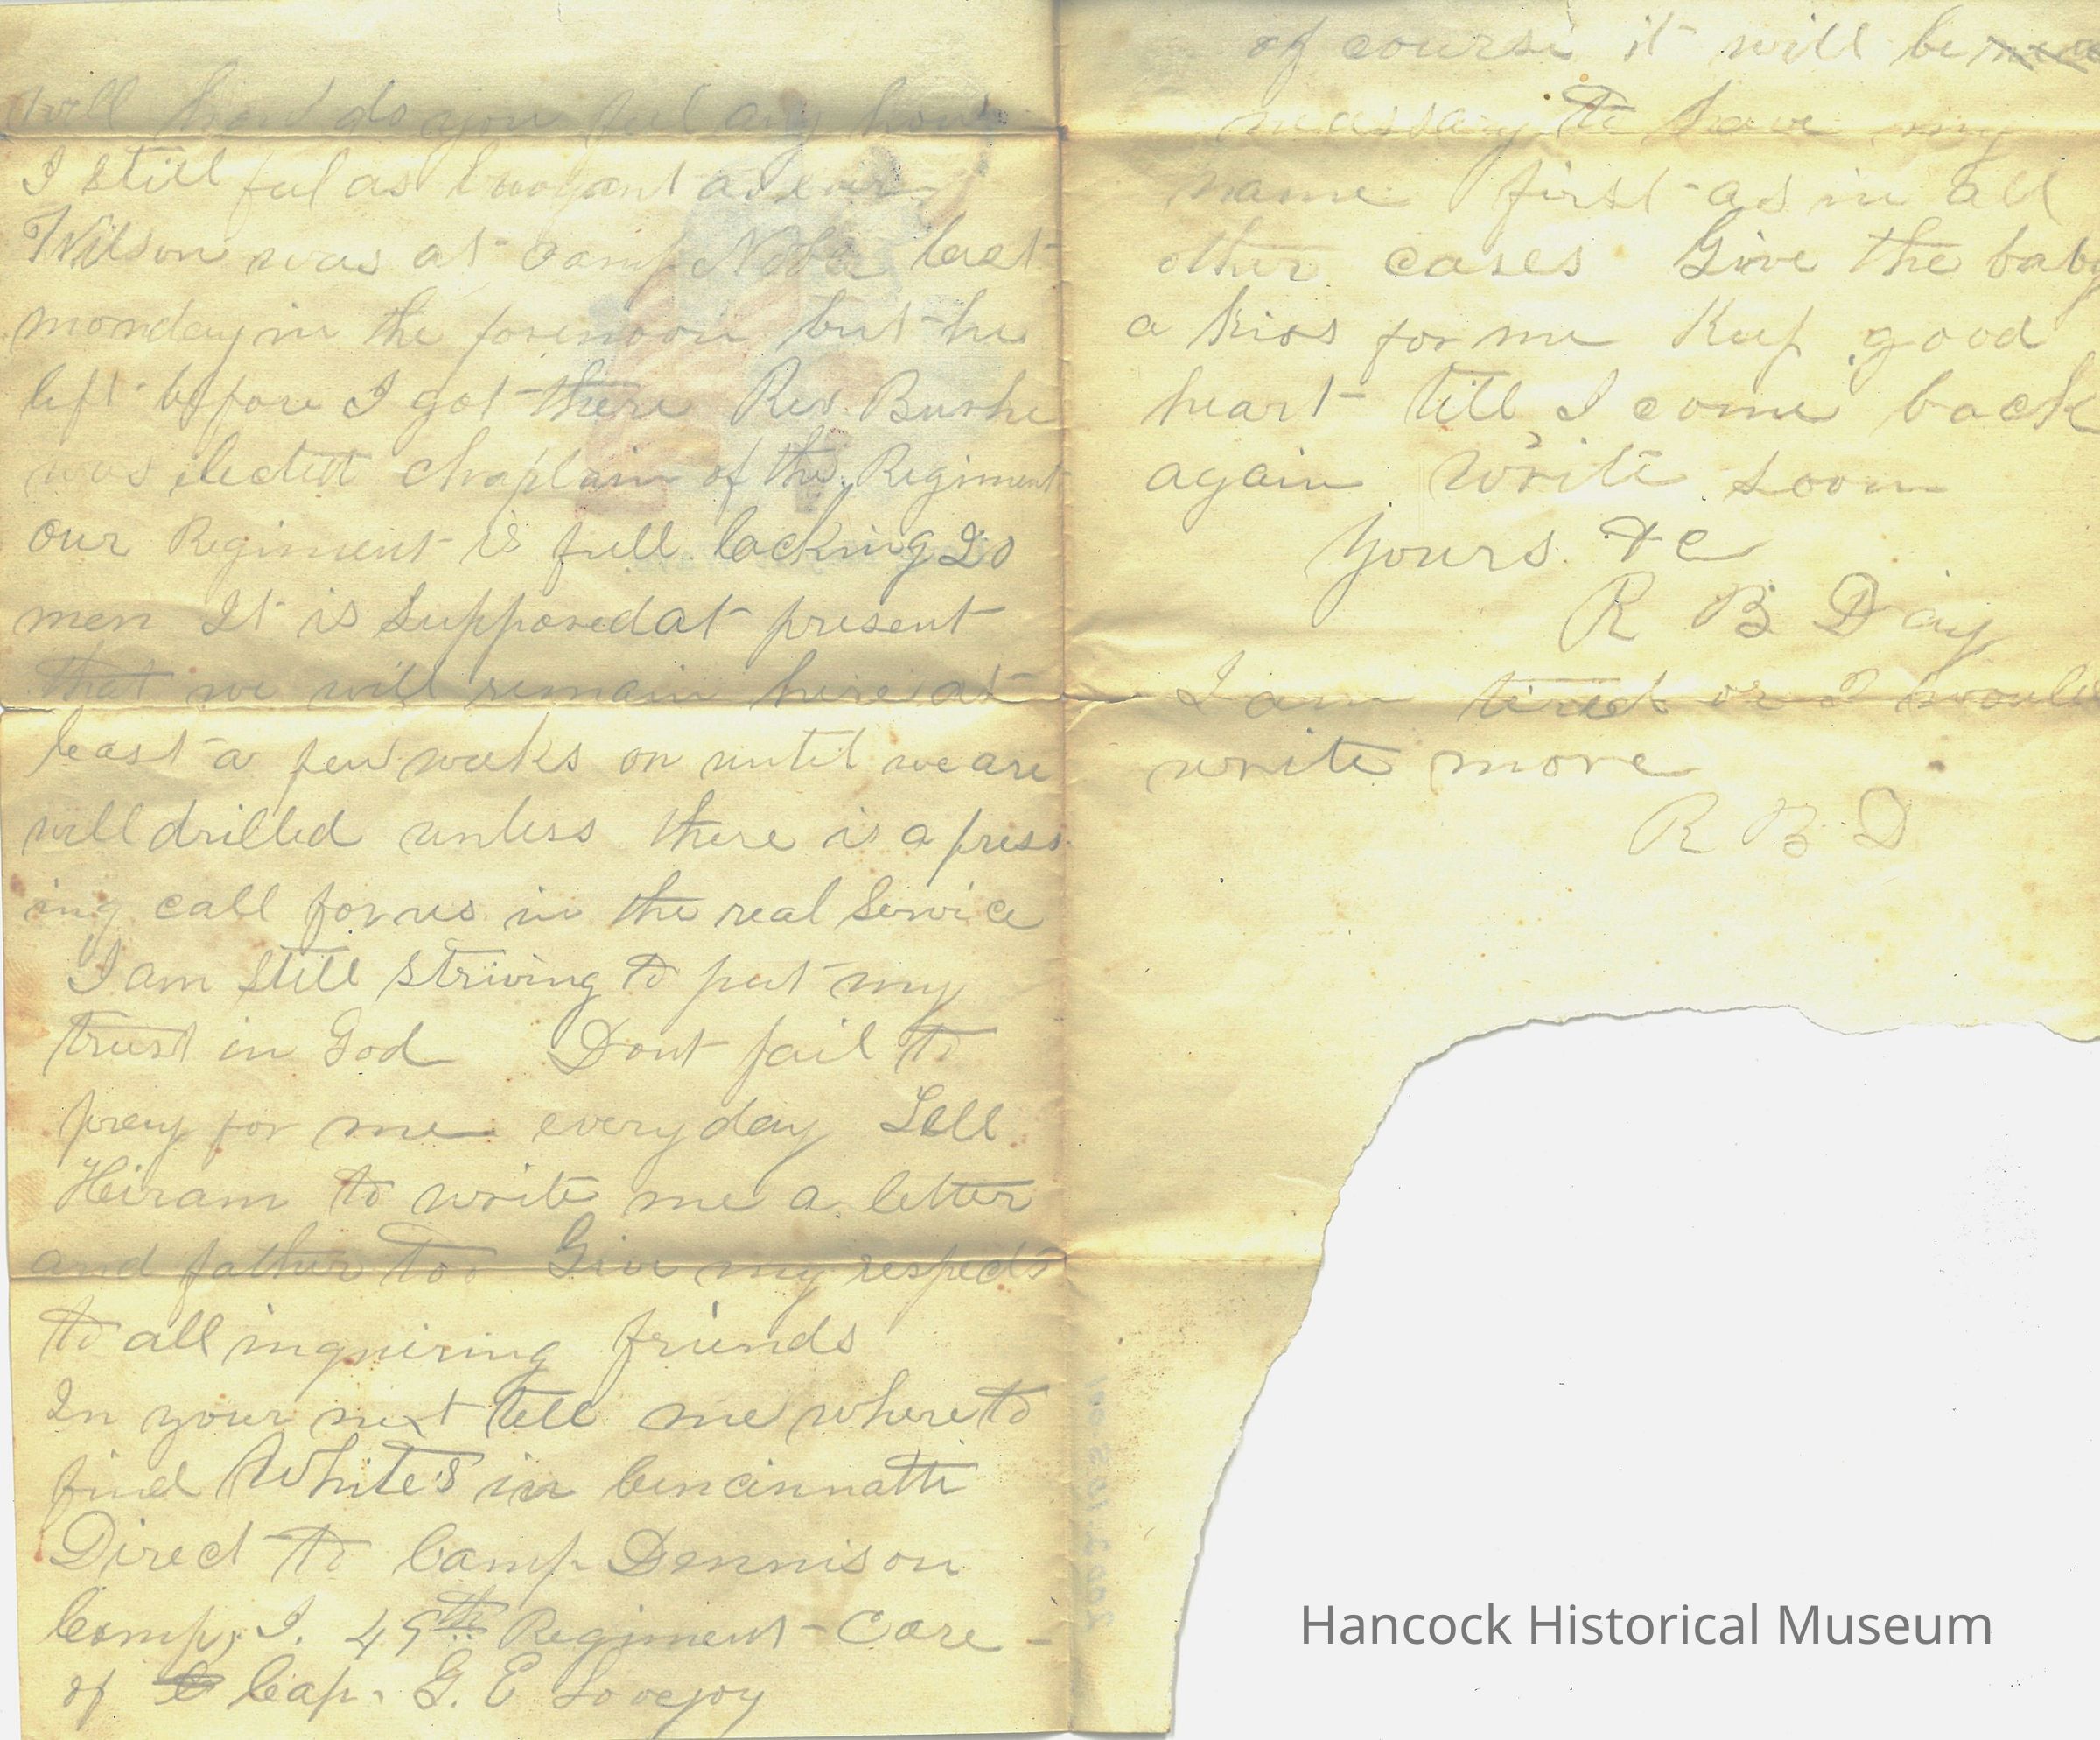 will how do you feel any how
I still feel as buoyant as ever
Wilson was at Camp Noble last
monday in the forenoon but he
left before I got there Rev. Bushe
was elected chaplain of the Regiment
our Regiment is full lacking 20
men It is supposed at present
that we will remain here at
least a few weeks on until we are
will drilled unless there is a press
ing call for us in the real Service
I am still striving to put my
trust in God Dont fail to
pray for me every day Tell
Hiram to write me a letter
and father too Give my respects
to all inquiring friends
In your next tell me where to
find White's in Cincinnatti
Direct to Camp Dennison
Comp, I. 49th Regiment - Care -
of Cap. G. E Lovejoy
of course it will be
necessary to have my
name first as in all
other cases Give the baby
a kiss for me Keep good
heart till I come back
again write soon
Yours &c
R B Day
I am tired or I would
write more
R B D
Hancock Historical Museum